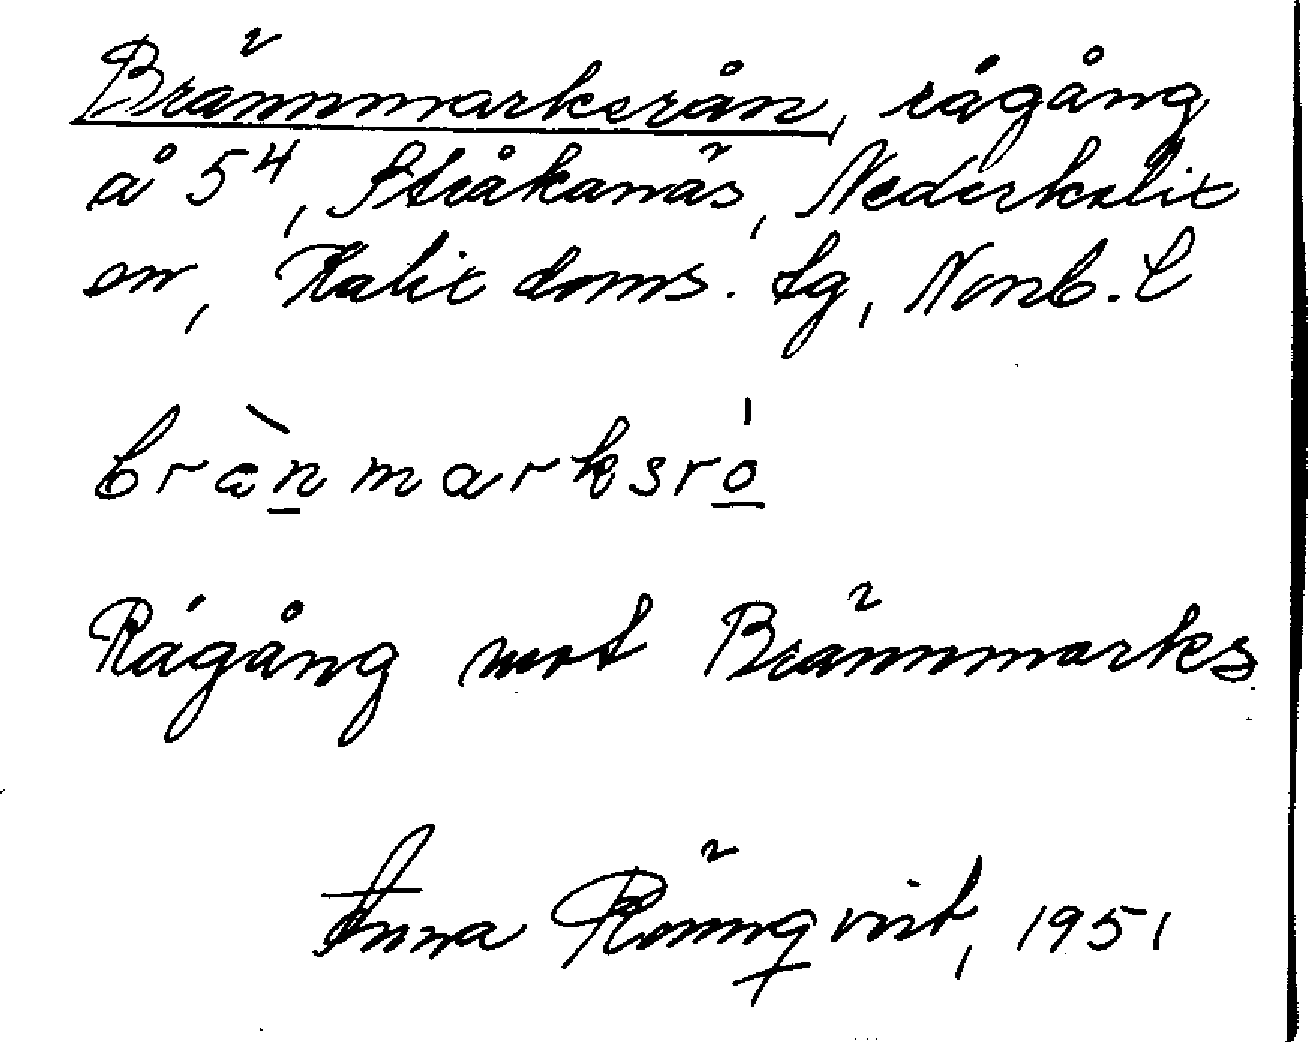 Brännmarksrån, rågång
å 5⁴, Stråkanäs, Nederkalix
sn, Kalix doms. tg, Norrb. l
brànmarksró
Rågång mot Brännmarks
Anna Rönnqvist, 1951